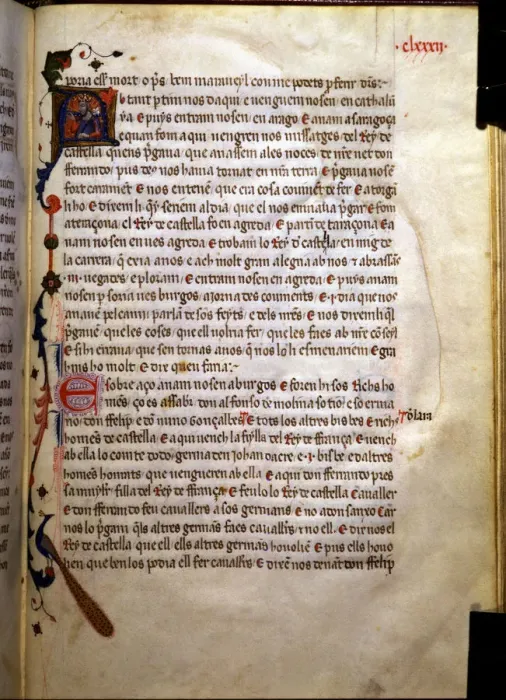 clxxxij
poria esser mort o pres bem maraueyl con me podets pendre dins
b tant partim nos daqui e uenguem nosen en cathalu
ya E puys entram nosen en arago E anam a saragoça
e quan fom aqui uengren nos missatges del Rey de
castella quens pregaua que anassem a les noces de nostre net don
fferrando pus deus nos hauia tornat en nostra terra E pregaua nosen
fort carament E nos entenem que era cosa couinent de fer E atorgam
lin ho E dixem li que seriem al dia que el nos enuiaua pregar E fom
a teraçona el Rey de castella fo en agreda E partim de taraçona E a
nam nosen ues agreda E trobam lo Rey de castella en mig de
la carrera que exia a nos e ach molt gran alegria ab nos e abrassans
iij uegades e ploram E entram nosen en agreda E puys anam
nosen per soria ues burgos a iorna des couinents E i dia que nos
anauem pel cami parlam de sos feyts e dels nostres E nos dixem li que
pregauem que les coses que ell uolria fer que les faes ab nostre conseyl
E si hi erraua que sen tornas a nos que nos lo hi esmenariem E gra
hi ns ho molt E dix quen faria
E sobre aço anam nosen a burgos E foren hi sos Richs ho
mens ço es assaber don alfonso de molina so tio e so erma
no don ffelip e don nuno gonçalues E tots los altres bisbes E richs
Tolara
homens de castella E aqui uench la fiylla del Rey de ffrança E uench
ab ella lo comte do do genria den Johan dacre e i bisbe e daltres
homens honrats que uengueren ab ella E aqui don fferrando pres
sa muyler filla del Rey de ffrança E feu lo lo Rey de castella Caualler
E don fferrando feu cauallers a sos germans E no a don sanxo Car
nos lo pregam quels altres germans faes cauallers e no ell E dix nos el
Rey de castella que ell e ells altres germans ho uolien E pus ells ho uo
lien que ben los podia ell fer cauallers E dixem nos denant don ffelip